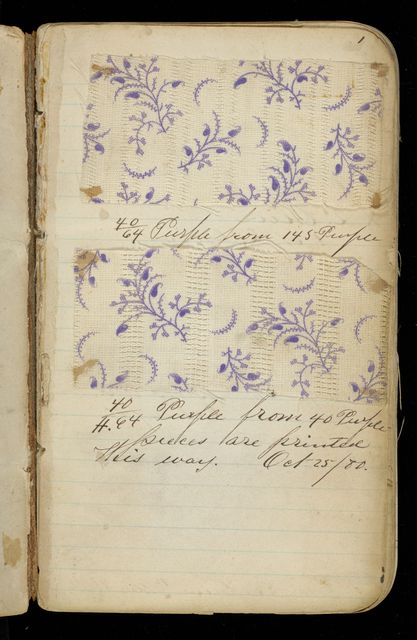 1
40
64 Purple from 145 Purple
40
H. 64 Purple from 40 Purple
pieces are printed
This way. Oct 25/80.